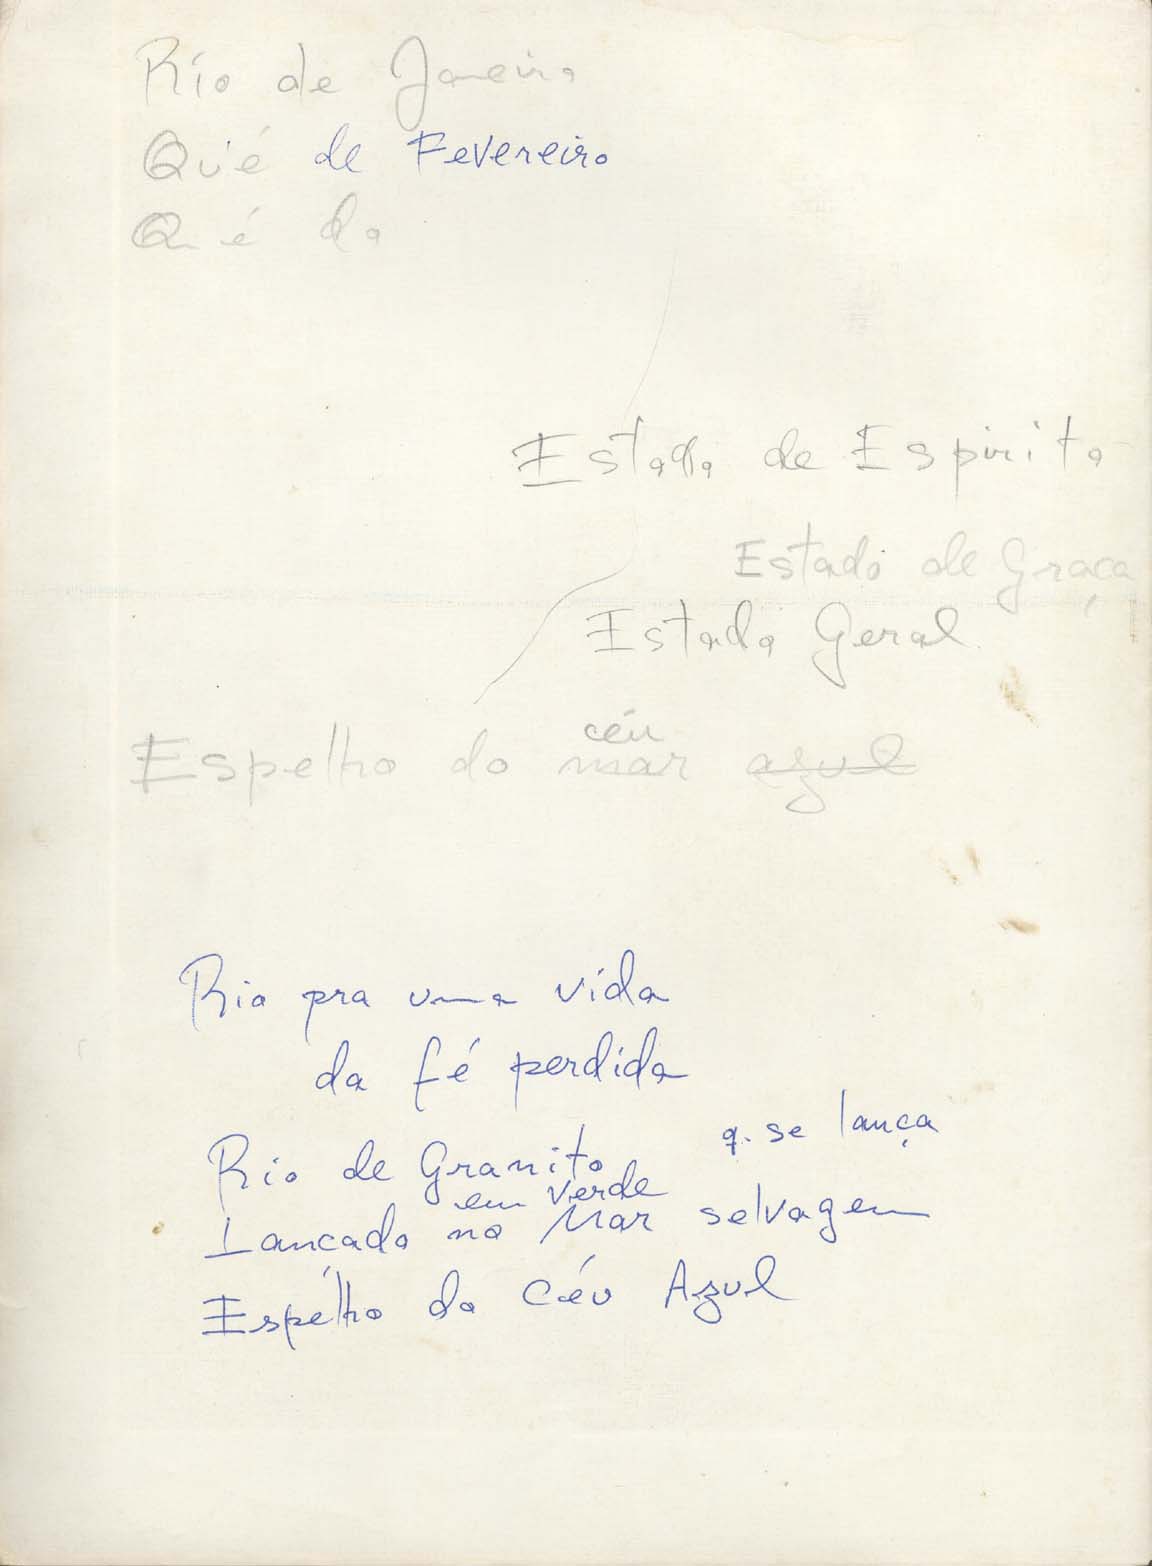 Rio de Janeiro
Qu'é de Fevereiro
Qu é do
Estado de Espirito
Estado de Graça
Estado Geral
céu
Espelho do mar azul
Rio pra uma vida
da fé perdida
q. se lança
Rio de Granito
em verde
Lançado no Mar selvagem
Espêlho do Céu Azul